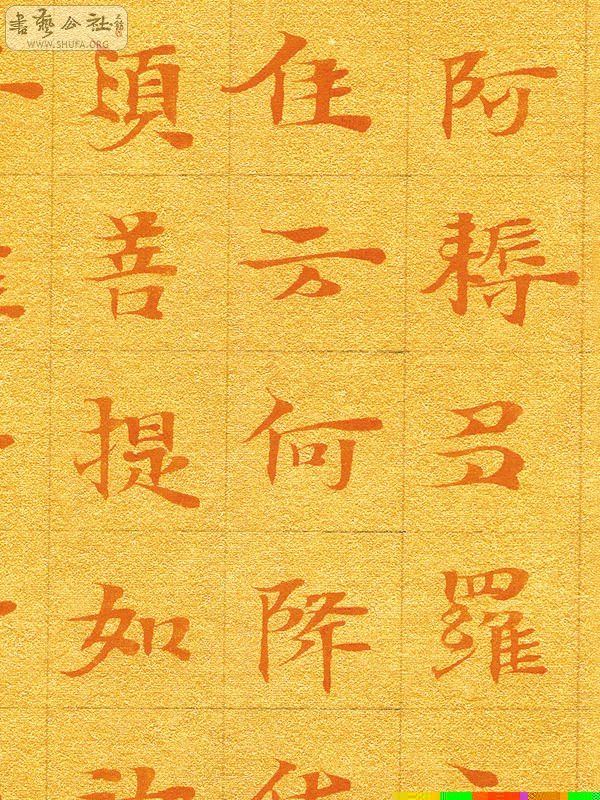 書藝公社
WWW.SHUFA.ORG
阿耨多羅
住云何降
須菩提如